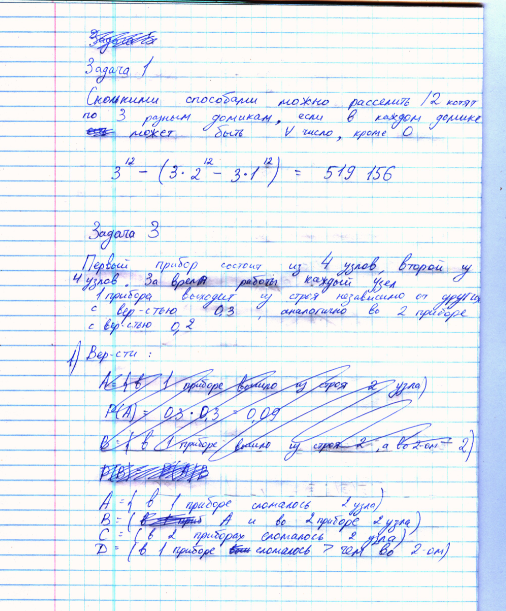 Задача 1
Сколькими способами можно расселить 12 котят
по 3 разным домикам, если в каждом домике
может быть ∀ число, кроме 0
3^12 - (3·2^12 - 3·1^12) = 519 156
Задача 3
Первый прибор состоит из 4 узлов, второй из
4 узлов. За время работы каждый узел
1 прибора выходит из строя независимо от других
с вер-стью 0,3 аналогично во 2 приборе
с вер-стью 0,2
1) Вер-сти:
A = { в 1 приборе вышло из строя 2 узла)
P(A) = 0,3 · 0,3 = 0,09
B = { в 1 приборе вышло из строя 2, а во 2-ом 2)
A = { в 1 приборе сломалось 2 узла)
B = ( A и во 2 приборе 2 узла)
C = ( в 2 приборах сломалось 2 узла)
D = (в 1 приборе сломалось > чем во 2-ом)